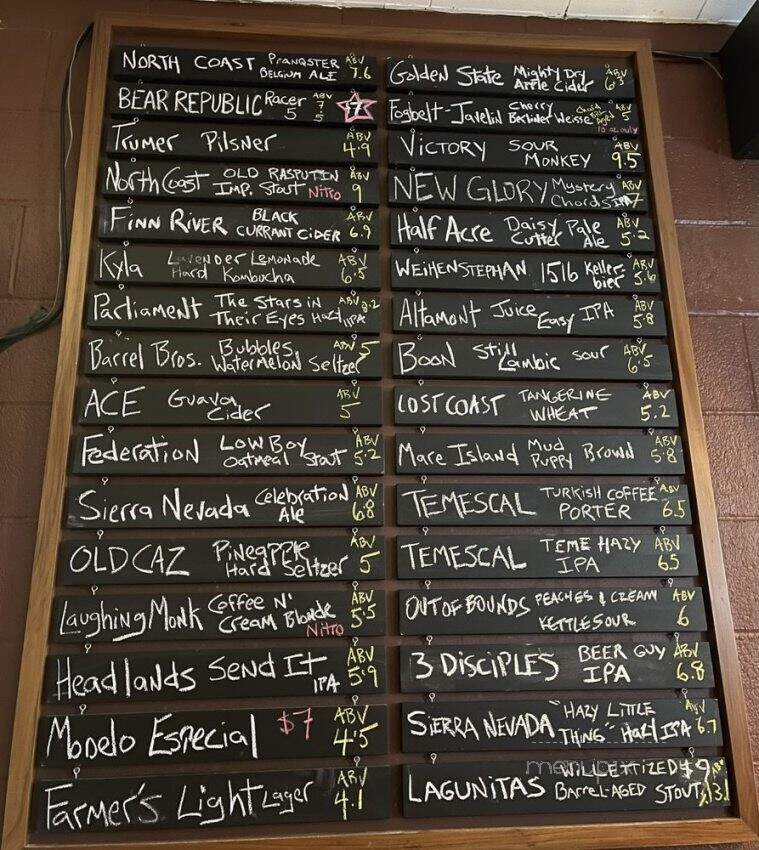 NORTH COAST PRANQSTER BELGIUM ALE ABV 7.6
BEAR REPUBLIC Racer 5 ABV 7.5 $7
Trumer Pilsner ABV 4.9
North Coast OLD RASPUTIN Imp. Stout Nitro ABV 9
FINN RIVER BLACK CURRANT CIDER ABV 6.9
Kyla Lavender Lemonade Hard Kombucha ABV 6.5
Parliament The Stars in Their Eyes Hazy IPA ABV 8.2
Barrel Bros. Bubbles Watermelon Seltzer ABV 5
ACE Guava Cider ABV 5
Federation LOW BOY Oatmeal Stout ABV 5.2
Sierra Nevada Celebration Ale ABV 6.8
OLD CAZ Pineapple Hard Seltzer ABV 5
Laughing Monk Coffee N' Cream Blonde Nitro ABV 5.5
Headlands Send It IPA ABV 5.9
Modelo Especial $7 ABV 4.5
Farmer's Light Lager ABV 4.1
Golden State Mighty Dry Apple Cider ABV 6.3
Fogbelt-Javelin Cherry Berliner Weisse ABV 5 10 oz only
VICTORY SOUR MONKEY ABV 9.5
NEW GLORY Mystery Chords IPA ABV 7
Half Acre Daisy Cutter Pale Ale ABV 5.2
WEIHENSTEPHAN 1516 Kellerbier ABV 5.6
Altamont Juice Easy IPA ABV 5.8
BOON Still Lambic sour ABV 6.5
LOST COAST TANGERINE WHEAT ABV 5.2
Mare Island Mud Puppy Brown ABV 5.8
TEMESCAL TURKISH COFFEE PORTER ABV 6.5
TEMESCAL TEME HAZY IPA ABV 6.5
OUT OF BOUNDS PEACHES & CREAM KETTLE SOUR ABV 6
3 DISCIPLES BEER GUY IPA ABV 6.8
SIERRA NEVADA "HAZY LITTLE THING" HAZY IPA ABV 6.7
LAGUNITAS WILLETTIZED $9 BARREL-AGED STOUT